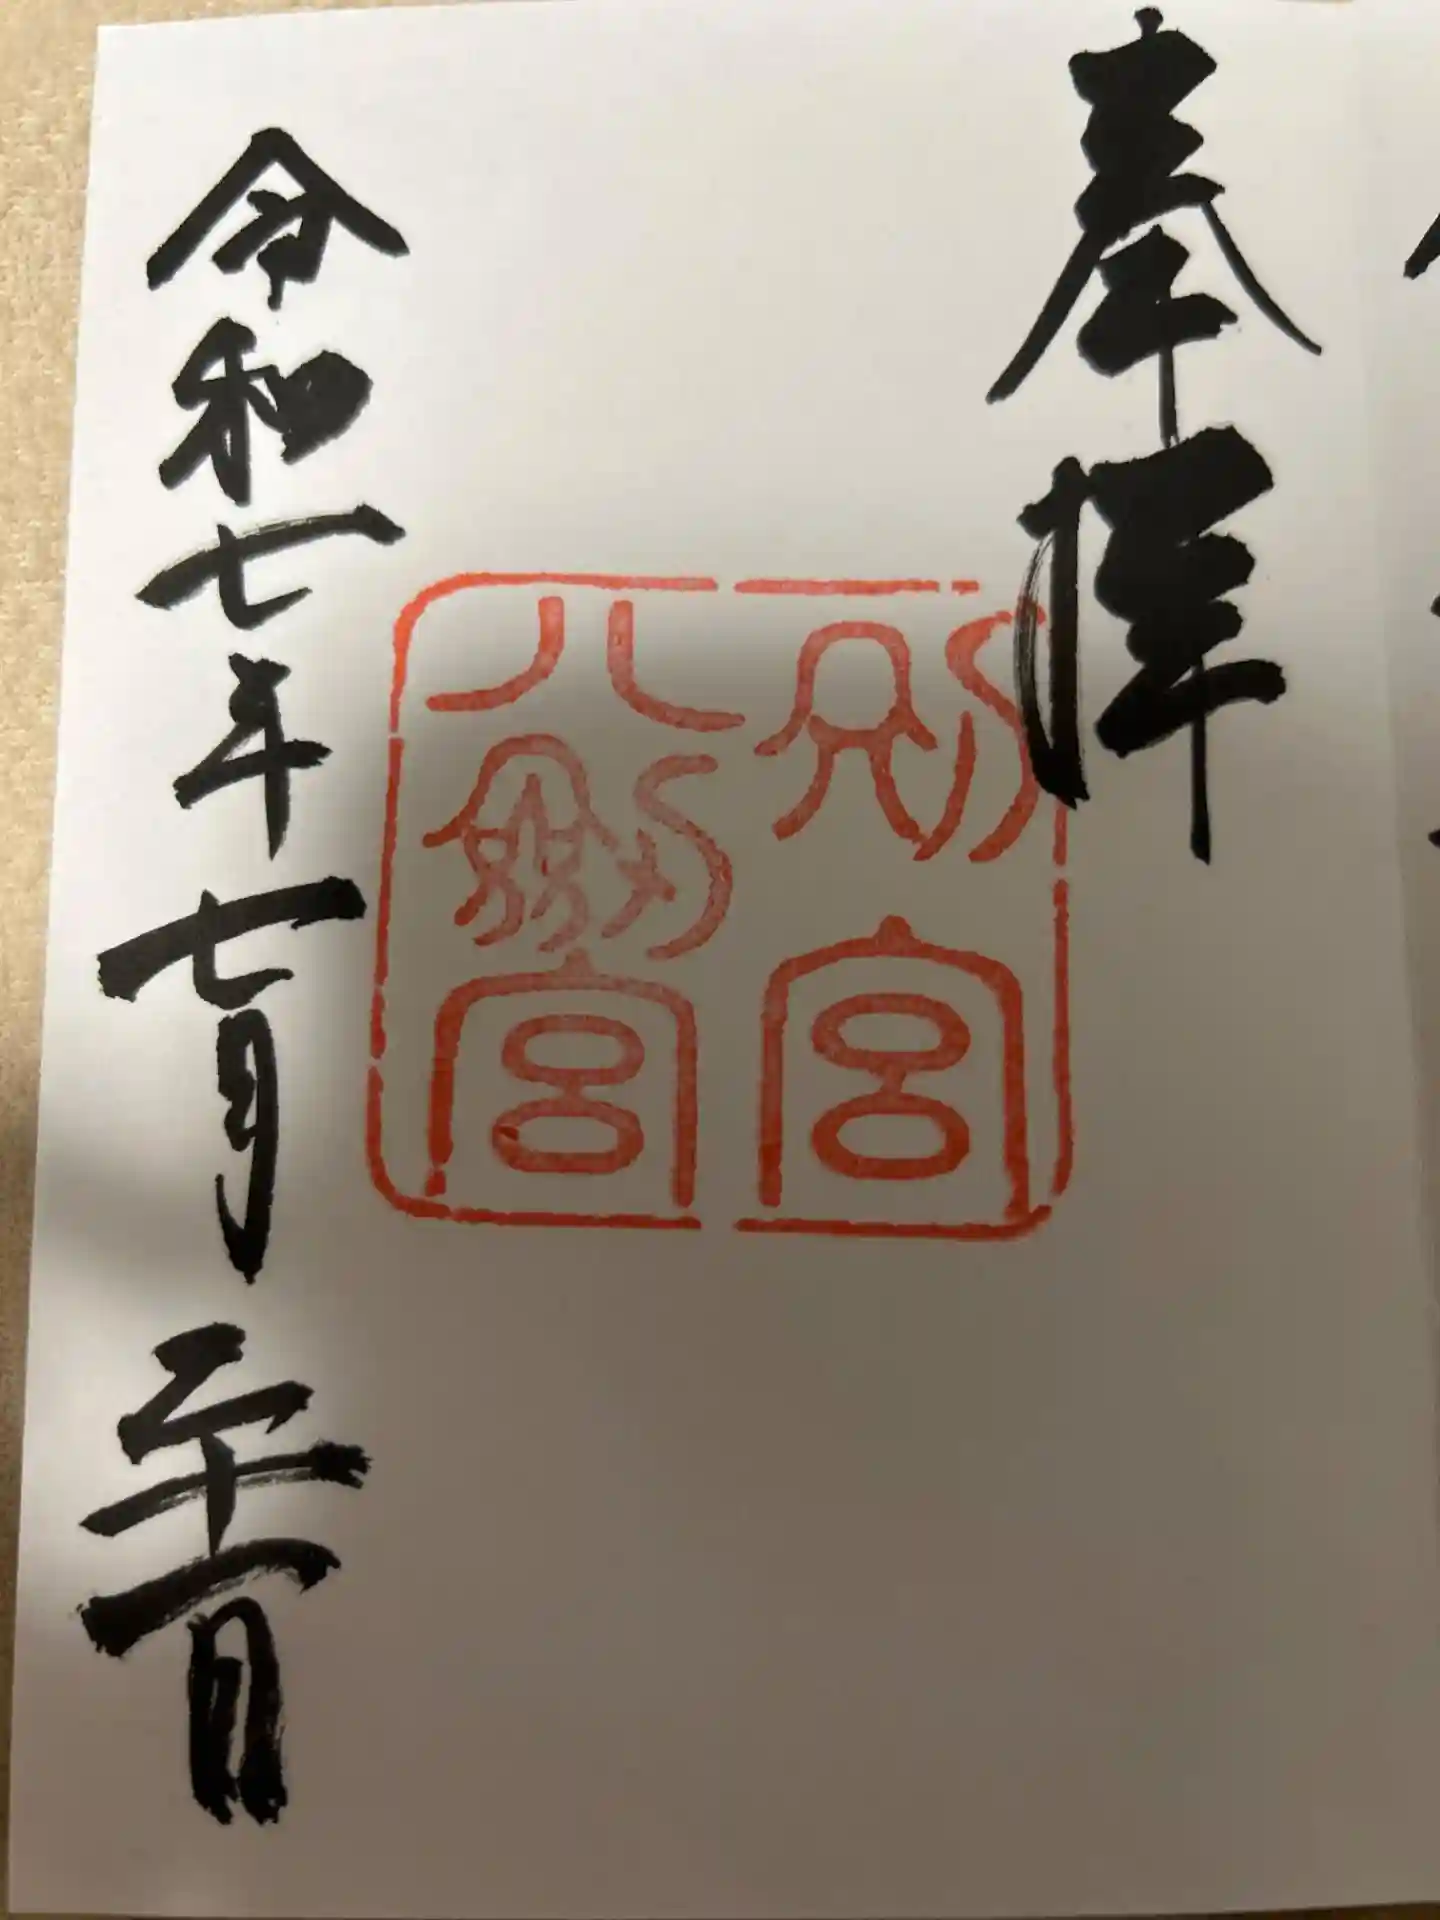 奉拝
別宮
八劔宮
令和七年七月二十一日